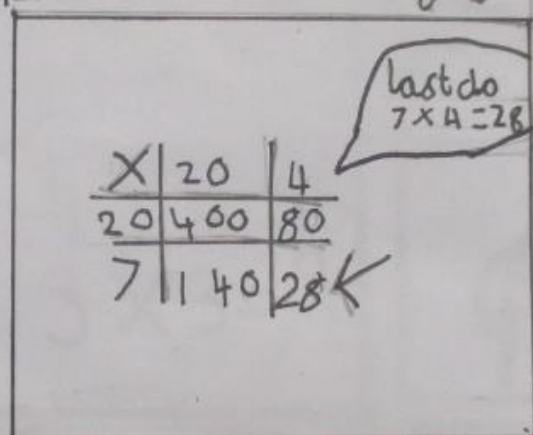 last do
7 × 4 = 28
X 20 4
20 400 80
7 140 28